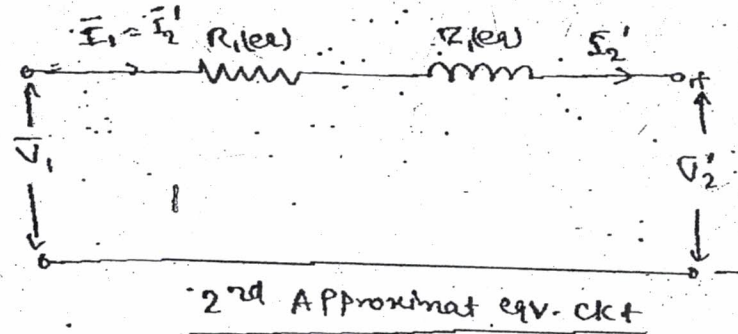 Ī₁ = Ī₂' R₁(eq) Z₁(eq) I₂'
V̄₁ V₂'
2nd Approximat eqv. ckt